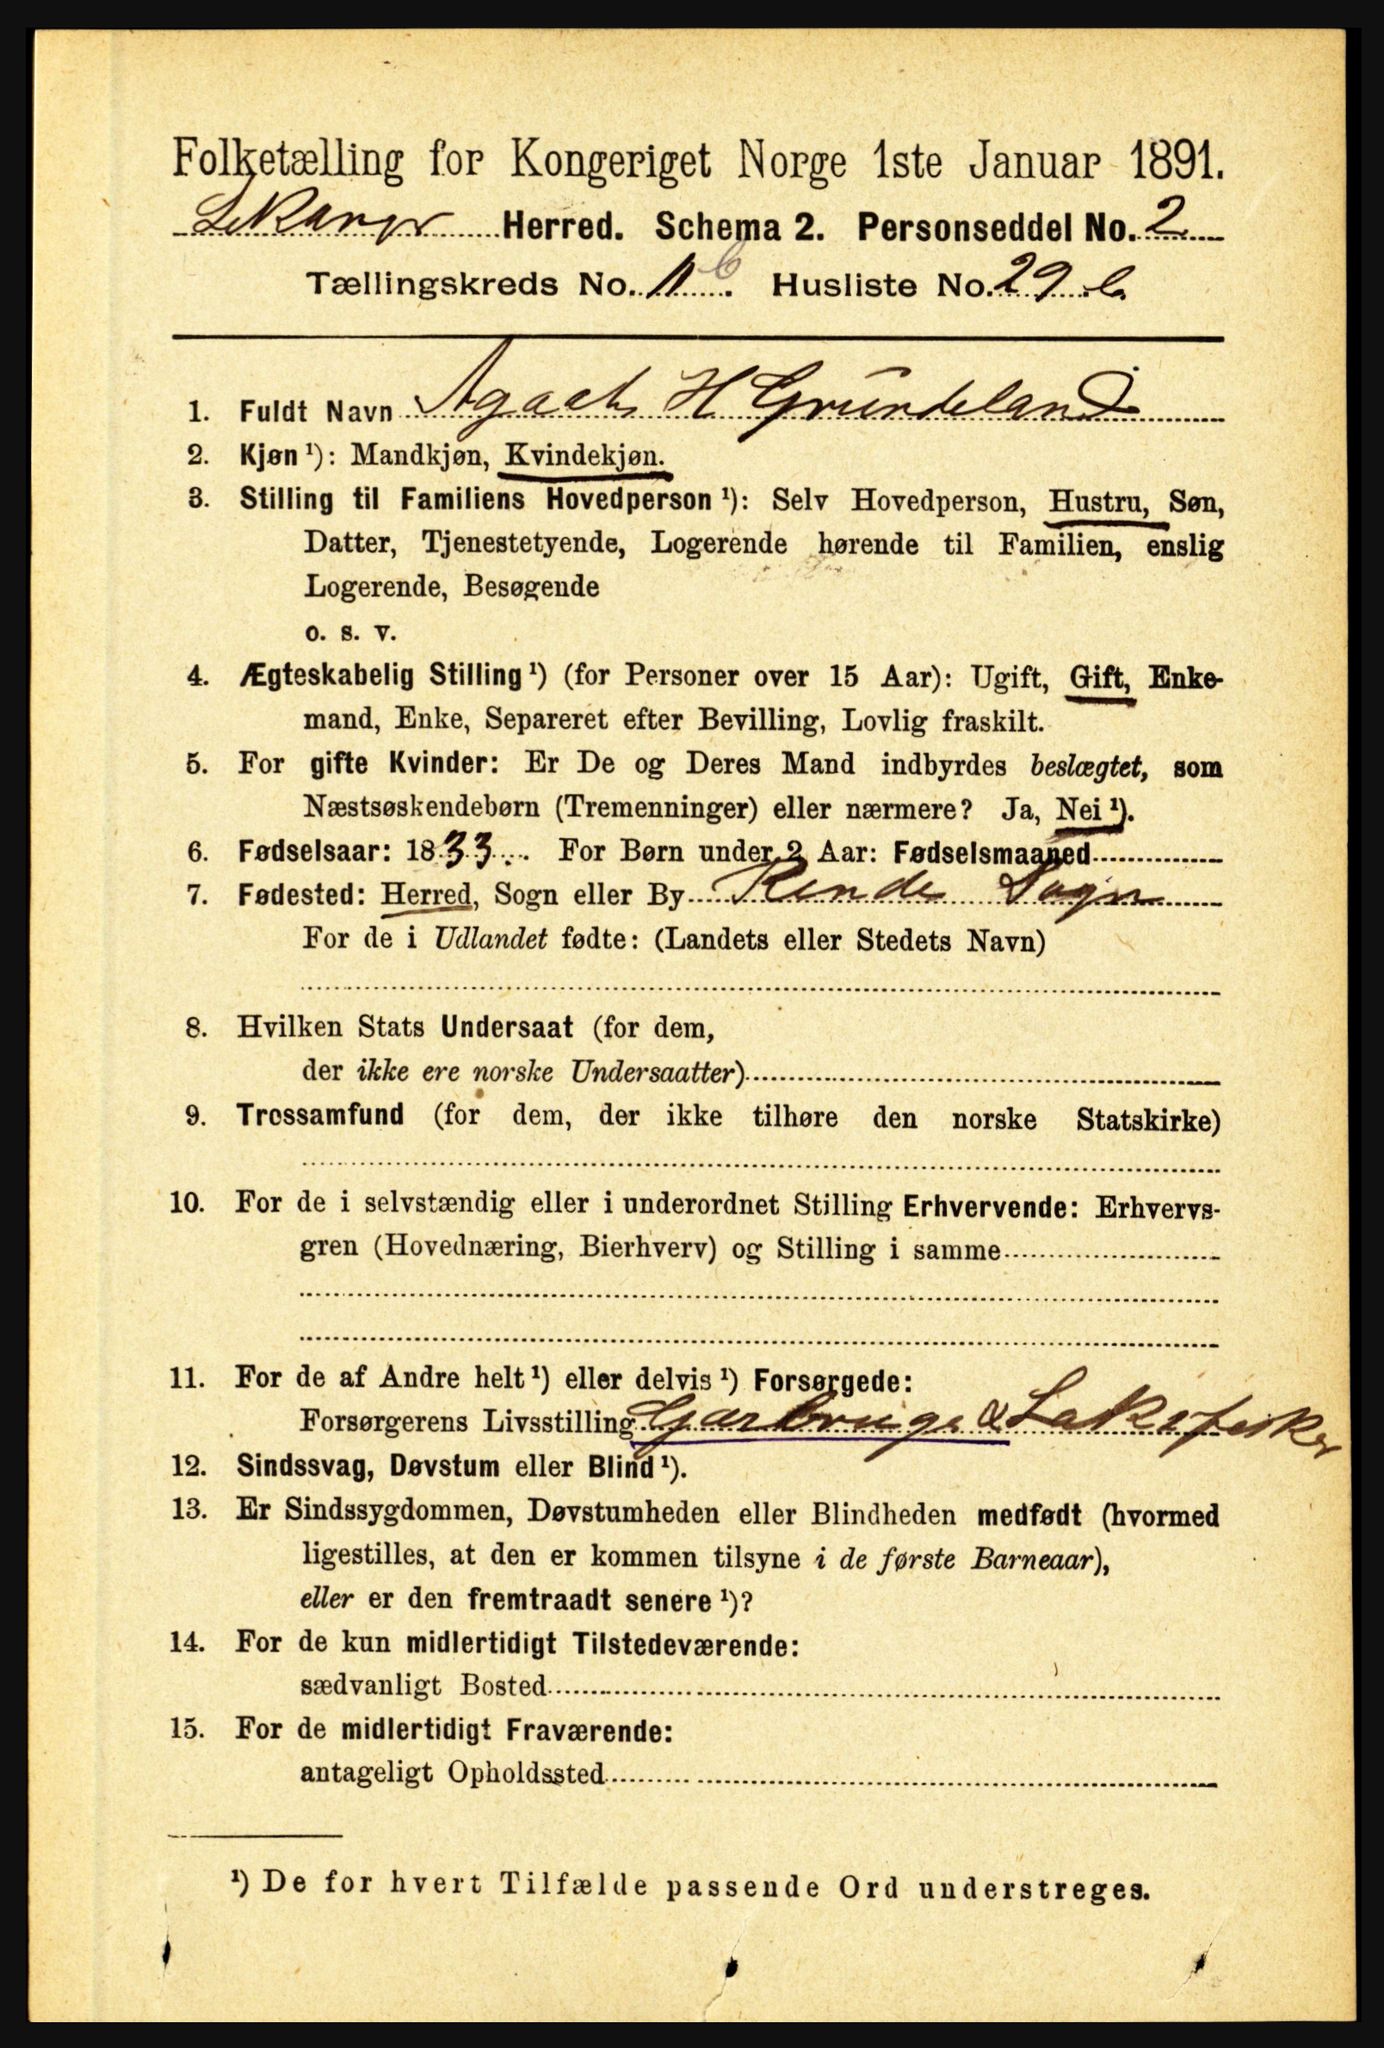 Folketælling for Kongeriget Norge 1ste Januar 1891.
Herred. Schema 2. Personseddel No. 2
Tællingskreds No. 11 b. Husliste No. 29 b.
1. Fuldt Navn Agaath H Grundeland
2. Kjøn ¹): Mandkjøn, Kvindekjøn.
3. Stilling til Familiens Hovedperson ¹): Selv Hovedperson, Hustru, Søn,
Datter, Tjenestetyende, Logerende hørende til Familien, enslig
Logerende, Besøgende
o. s. v.
4. Ægteskabelig Stilling ¹) (for Personer over 15 Aar): Ugift, Gift, Enke-
mand, Enke, Separeret efter Bevilling, Lovlig fraskilt.
5. For gifte Kvinder: Er De og Deres Mand indbyrdes beslægtet, som
Næstsøskendebørn (Tremenninger) eller nærmere? Ja, Nei ¹).
6. Fødselsaar: 1833. For Børn under 2 Aar: Fødselsmaaned
7. Fødested: Herred, Sogn eller By Kinds Sogn
For de i Udlandet fødte: (Landets eller Stedets Navn)
8. Hvilken Stats Undersaat (for dem,
der ikke ere norske Undersaatter)
9. Trossamfund (for dem, der ikke tilhøre den norske Statskirke)
10. For de i selvstændig eller i underordnet Stilling Erhvervende: Erhvervs-
gren (Hovednæring, Bierhverv) og Stilling i samme
11. For de af Andre helt ¹) eller delvis ¹) Forsørgede:
Forsørgerens Livsstilling Garbruge & Laksfisker
12. Sindssvag, Døvstum eller Blind ¹).
13. Er Sindssygdommen, Døvstumheden eller Blindheden medfødt (hvormed
ligestilles, at den er kommen tilsyne i de første Barneaar),
eller er den fremtraadt senere ¹)?
14. For de kun midlertidigt Tilstedeværende:
sædvanligt Bosted
15. For de midlertidigt Fraværende:
antageligt Opholdssted
¹) De for hvert Tilfælde passende Ord understreges.